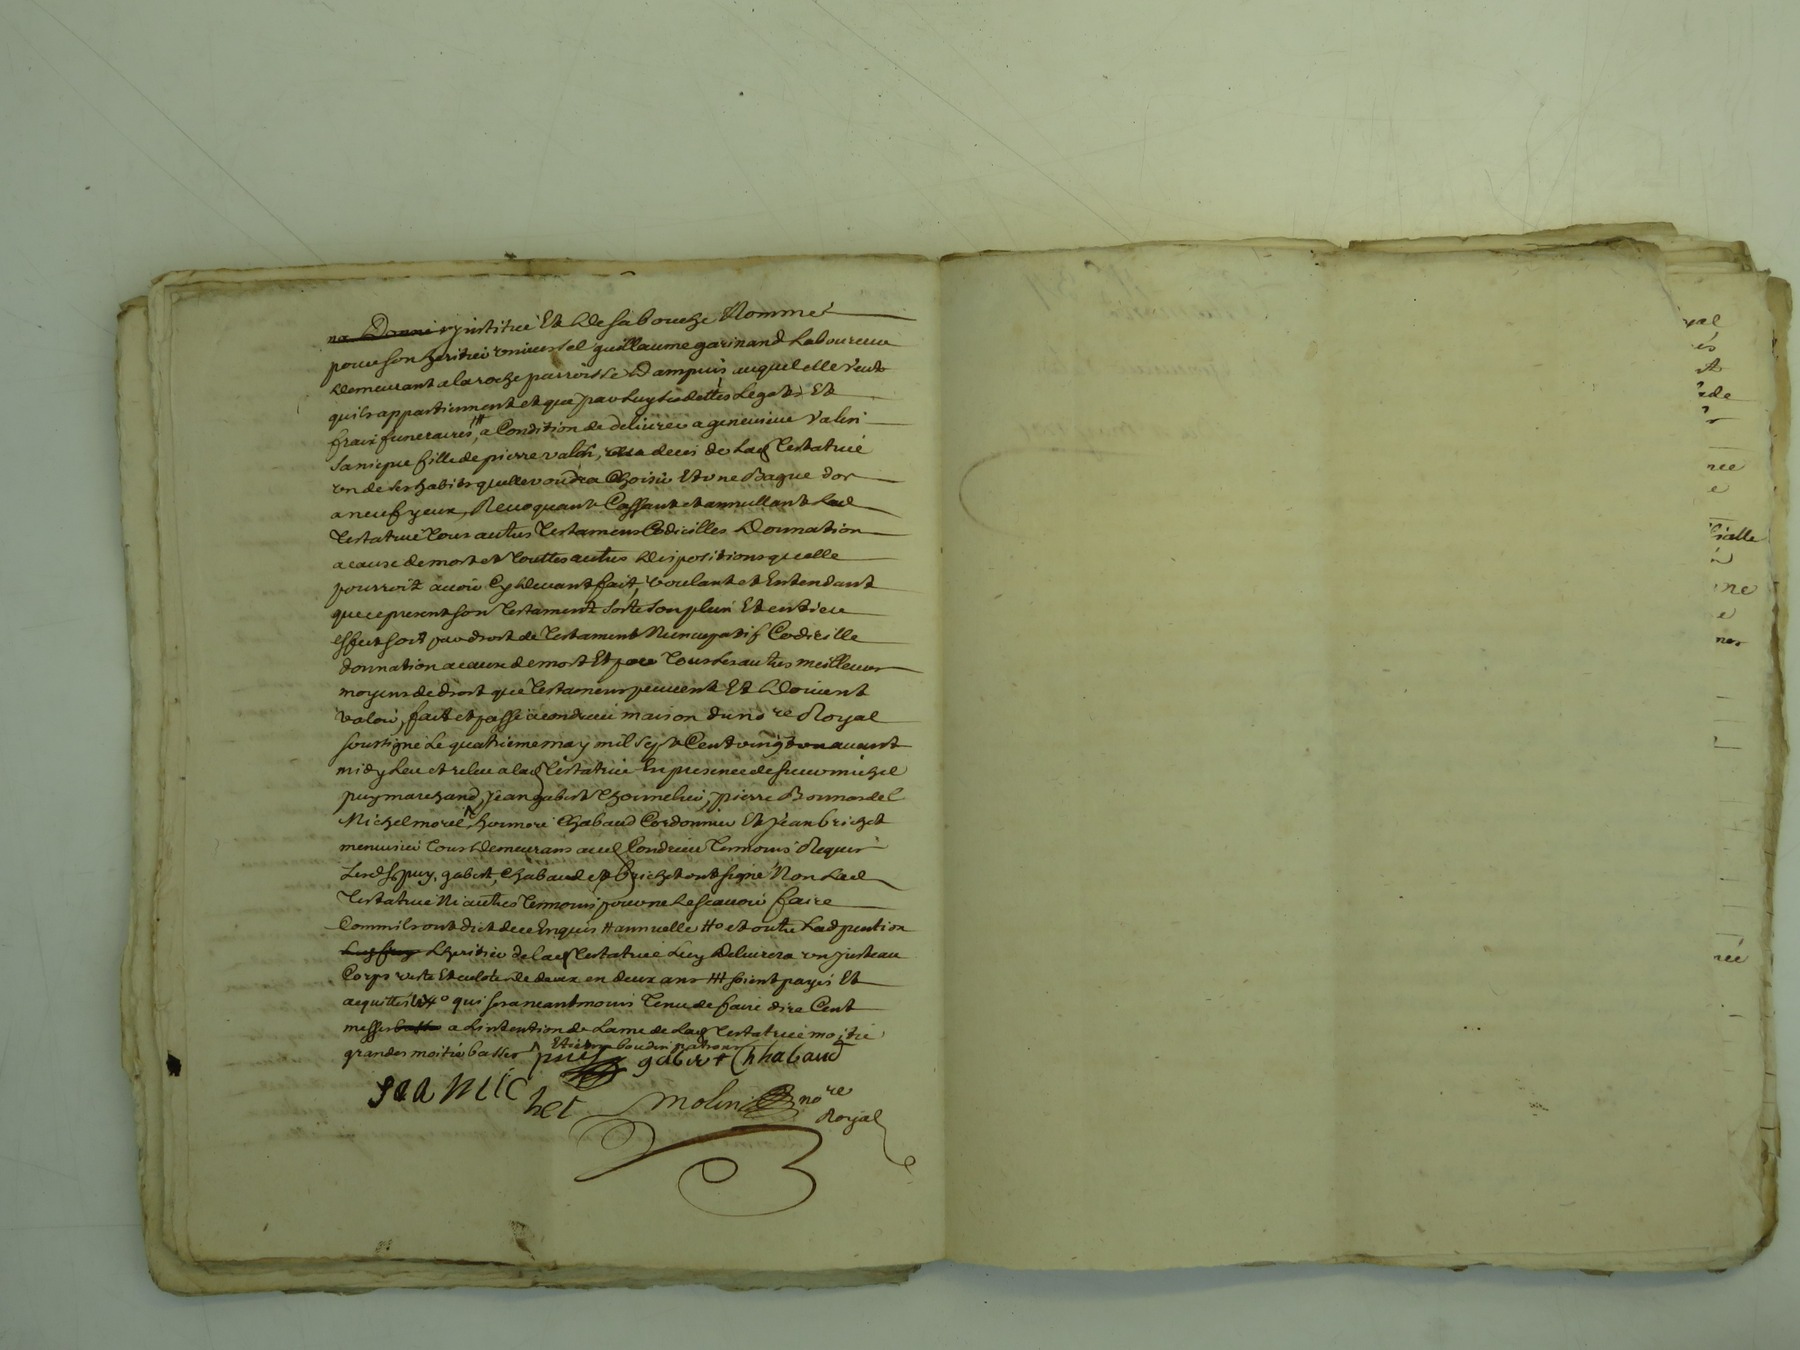 institué Et de sa bouche Nommé
pour son heritier universel guillaume garinand Laboureur
demeurant a la roche parroisse D'ampuis auquel elle veut
qu'ils appartiennent et que par luy ses dettes Legats Et
frais funeraires #, a Condition de delivrer a genevieve valin
sa niepce fille de pierre valin, deces de lad testatrice
un de ses habits quelle voudra Choisir Et une Bague d'or
a neuf yeux, Revoquant Cassant et annullant Lad
Testatrice tous autres Testamens Codicilles Donnation
a cause de mort et touttes autres dispositions quelle
pourroit avoir Cy devant fait, voulant et Entendant
que ce present son Testament sorte son plein Et entier
effect soit par droit de Testament Nuncupatif Codicille
donnation a cause de mort Et par tous les autres meilleurs
moyens de droit que Testamens peuvent Et doivent
valoir, fait et passé a condrieu maison du no re Royal
soussigné Le quatrieme may mil sept Cent vingt un avant
midy Leu et releu a lad Testatrice En presence de sieur michel
puy marchand, Jean gabert Chamelier, pierre Bonnardel
Michel morel, Chabaud Cordonnier Et Jean brichet
menuisier tous demeurans aud Condrieu Temoins Requis
Lesd Sr puy, gabert, Chabaud et brichet ont signé Non Lad
Testatrice Ni autres Temoins pour ne Le scavoir faire
Comm ils ont dict de ce Enquis # annuelle #o et outre Lad pention
L'heritier de lad Testatrice Luy Delivrera un justeau
Corps veste Et culote de deux en deux ans ## soient payés Et
acquittés qui sera neantmoins Tenu de faire dire Cent
messes a L'intention de L'ame de Lad Testatrice moitié
grandes moitié basses
puy gabert Chhabaud
Jean
het Molin no re
Royal